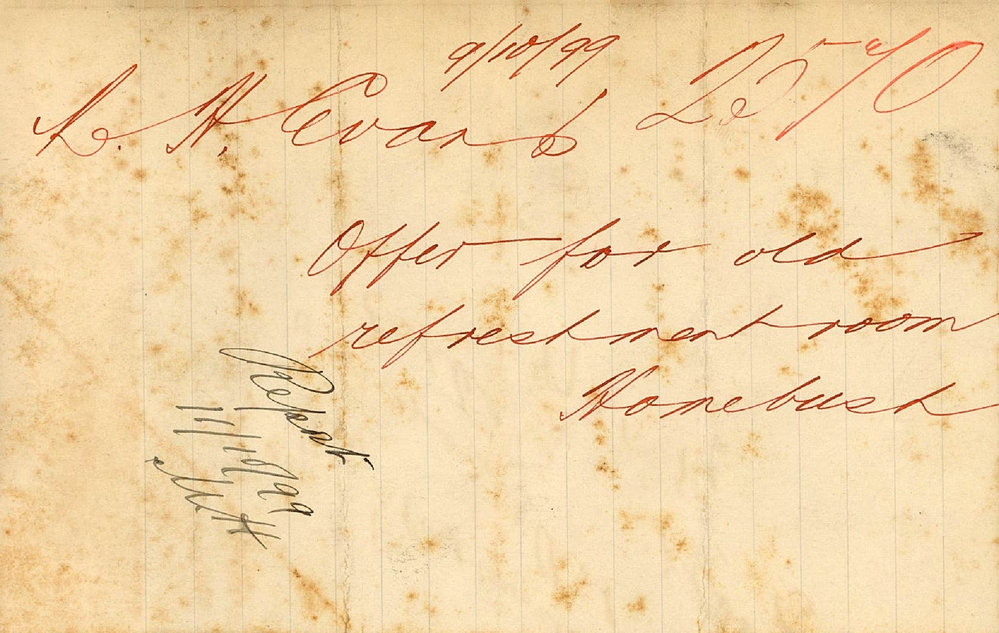 9/10/99
L. H. Evans £5"/"/0
Offer for old
refreshment room
Homebush
Report
11/10/99